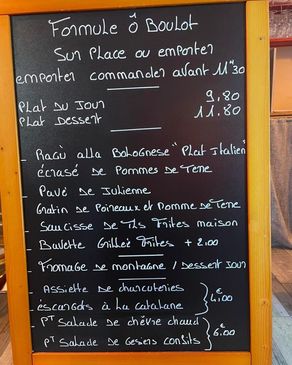 Formule Ô Boulot
Sur Place ou emporter
emporter commander avant 11h30
Plat du Jour 9,80
Plat Dessert 11,80
- Ragù alla Bolognese "Plat Italien"
écrasé de Pommes de Terre
- Pavé de Julienne
Gratin de Poireaux et Pomme de Terre
- Saucisse de Tls Frites maison
- Bavette Grillée Frites + 2.00
- Fromage de montagne / Dessert Jour
- Assiette de charcuteries
- escargots à la catalane } 4,00€
- PT Salade de chèvre chaud
- PT Salade de Gesiers confits } 6.00€